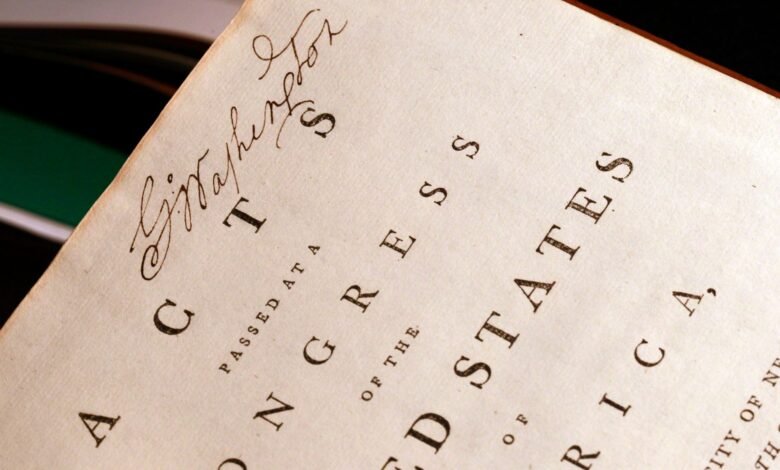 G:Washington
ACTS
PASSED AT A
ONGRESS
OF THE
ED STATES
OF
RICA,
ITY OF NE